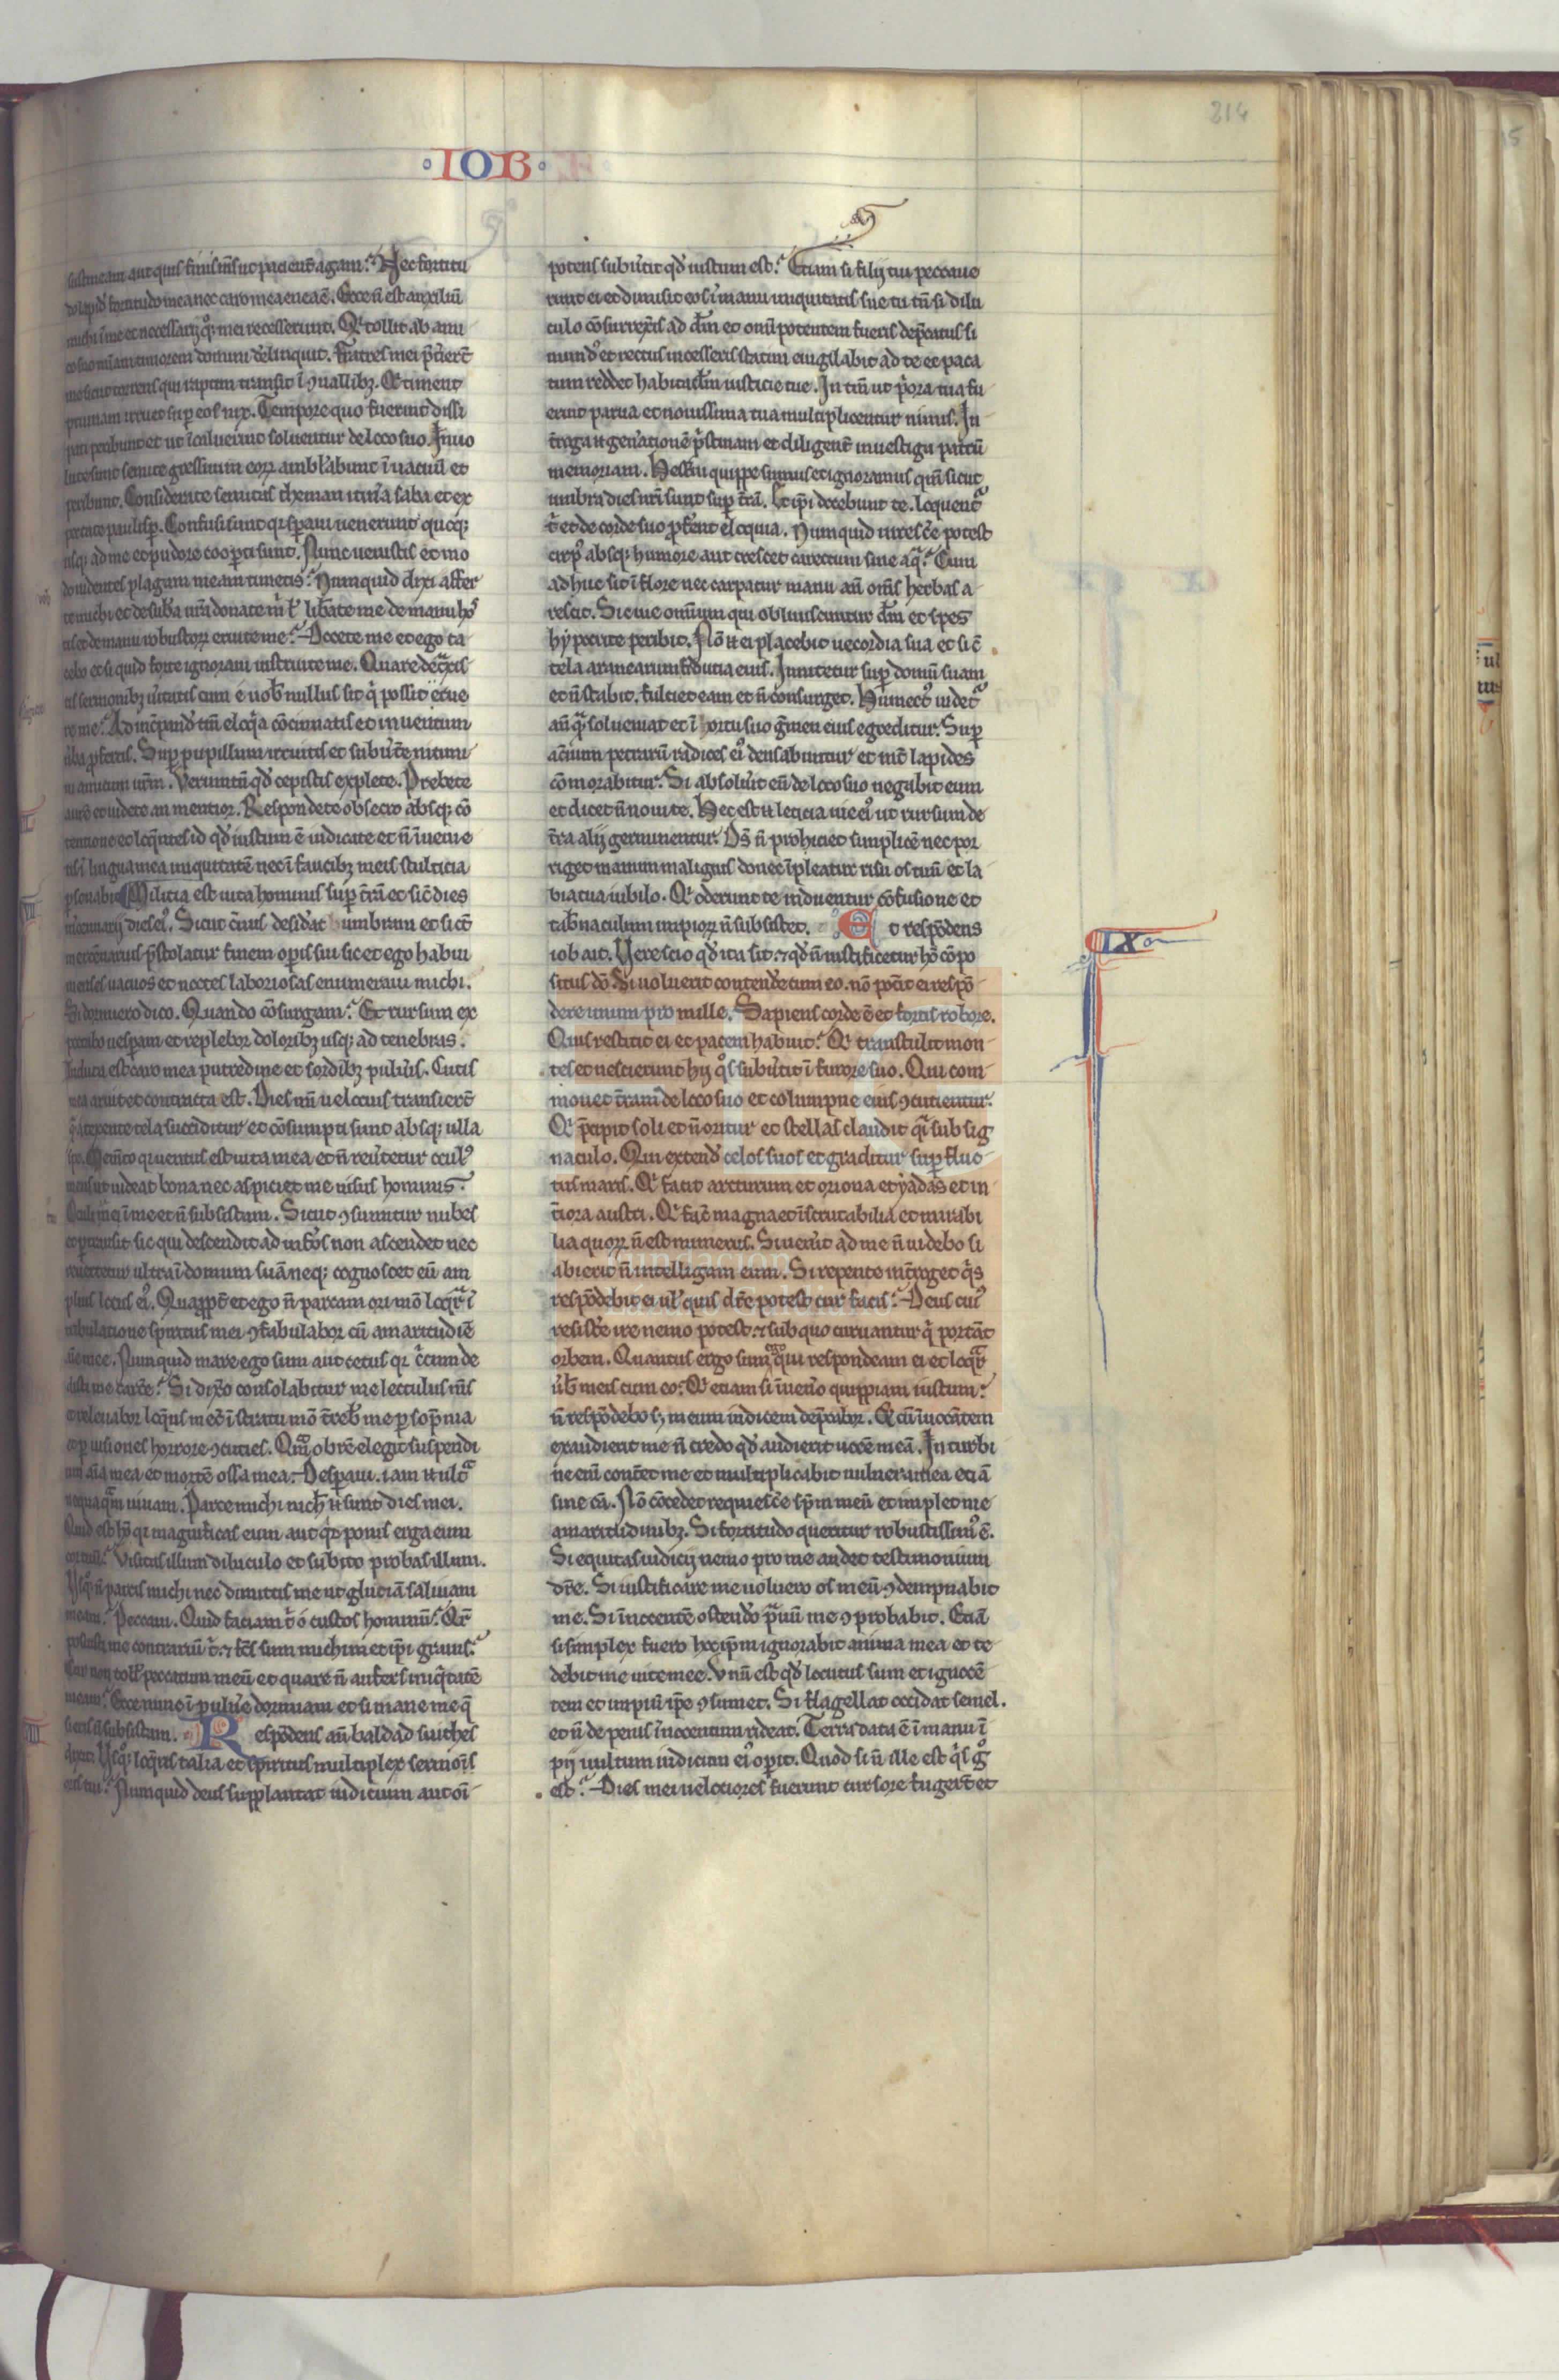 214
·IOB·
sustineam aut quis finis m̄s ut pacient̄ agam? Nec fortitu
do lapid̓ fortitudo mea nec caro mea enea ē. Ecce n̄ est auxiliū
michi ī me et necessarij qͦꝫ mei recesserunt. Qͥ tollit ab ami
co suo mīam timorem domini derelinquit. Fratres mei p̄t̓ier̄t
me sicut torrens qui raptim transit ī ꝯuallibꝫ. Qͥ timent
pruinam irruet sup̱ eos nix. Tempore quo fuerint dissi
pati peribunt et ut īcaluerint soluentur de loco suo. Inuo
lute sunt semite gressuum eorꝝ ambl̓abunt ī uacuū et
peribunt. Considerate semitas theman itin̓a saba et ex
pectate paulisp̱. Confusi sunt qꝛ sp̱aui uenerunt quoqꝫ
usqꝫ ad me et pudore coop̱ti sunt. Nunc uenistis et mo
do uidentes plagam meam timetis? Numquid dixi affer
te michi et de sub̄a ur̄a donate m̄ ł lib̓ate me de manu hoſ
tis et de manu robustorꝝ eruite me? Docete me et ego ta
cebo et si quid forte ignoraui instruite me. Quare det̾xis
tis sermonibꝫ u̓itatis cum e uob̓ nullus sit qͥ possit argue
re me? Ad inc̓pand̓ tm̄ eloqͥa cōcinnatis et in uentum
u̓ba ꝓfertis. Sup̱ pupillum irruitis et subu̓t̓e nitimi
ni amicum ur̄m. Verumtn̄ qd̓ cepistis explete. Prebete
aurē et uidete an mentior. Respondete obsecro absqꝫ cō
tentione et loqn̄tes id qd̓ iustum ē iudicate et n̄ īuenie
tis ī lingua mea iniquitatē nec ī faucibꝫ meis stulticia
ꝑsonabit. Milicia est uita hominis sup̱ t̄rā et sic̄ dies
m̓cennarij dies eͥ. Sicut c̓uus desid̓at umbram et sic̄
mercennarius p̄stolatur finem op̱is sui sic et ego habui
menses uacuos et noctes laboriosas enumeraui michi.
Si dormiero dico. Quando cōsurgam? Et rursum ex
pectabo uesp̱am et replebor doloribꝫ usqꝫ ad tenebras.
Induta est caro mea putredine et sordibꝫ pulu̓is. Cutis
mea aruit et contracta est. Dies mī uelocius transier̄t
qͣ a texente tela succiditur et cōsumpti sunt absqꝫ ulla
spe. Mem̄to qꝛ uentus est uita mea et n̄ reu̓tetur oculꝰ
meus ut uideat bona nec aspiciet me uisus hominis.
Oculi tui ī me et n̄ subsistam. Sicut ꝯsumitur nubes
et ꝑtransit sic qui descendit ad inf̓os non ascendet nec
reuertetur ultra ī domum suā neqꝫ cognoscet eū am
plius locus eͥ. Quapropt̓ et ego n̄ parcam ori mō loqͣr ī
tribulatione sp̄ritus mei ꝯfabulabor cū amaritudīe
aīe mee. Numquid mare ego sum aut cetus qꝛ c̓cumde
disti me carc̓e? Si dix̓o consolabitur me lectulus m̄s
et releuabor loqn̄s mecū ī stratu mō t̓reb̓ me ꝑ sōpnia
et ꝑ uisiones horrore ꝯcuties. Quāobrē elegit suspendi
um aīa mea et mortē ossa mea. Desp̱aui. iam n̄ ult̾
nequaqͣm uiuam. Parce michi nich̓ n̄ sunt dies mei.
Quid est hō qꝛ magnificas eum aut qͥd ponis erga eum
cor tuū? Visitas illum diluculo et subito probas illum.
Usqͦ n̄ parcis michi nec dimittis me ut glutiā saliuam
meam? Peccaui. Quid faciam t̓ ó custos hominū? Qͣre
posuisti me contrariū t̓. ⁊ fc̄s sum michimetip̄i grauis?
Cur non toll̓ peccatum meū et quare n̄ aufers iniqͥtatē
meam? Ecce nunc ī pulu̓e dormiam et si mane me q̄
sieris n̄ subsistam. Respōdens aū baldad suithes
dixit. Usqͦ loqͥris talia et sp̄ritus multiplex sermōis
oris tui? Numquid deus supplantat iudicium aut oī
potens subu̓tit qd̓ iustum est? Etiam si filij tui peccaue
runt ei et dimisit eos ī manu iniquitatis sue tu tn̄ si dilu
culo cōsurrex̓is ad dm̄ et om̄ipotentem fueris dep̄catus si
mundꝰ et rectus incesseris statim euigilabit ad te et paca
tum reddet habitacl̄m iusticie tue. In tm̄ ut pͥora tua fu
erint parua et nouissima tua multiplicentur nimis. In
t̓roga n̄ gen̓ationē pͥstinam et diligent̓ inuestiga patrū
memoriam. Hest̓ni quippe sumus et ignoramus qm̄ sicut
umbra dies nr̄i sunt sup̱ t̓rā. Et ip̄i docebunt te. loquent̾
t̓ et de corde suo ꝓferent eloquia. Numquid uiresc̓e potest
cirpꝰ absqꝫ humore aut crescet carectum sine aqͣ? Cum
adhuc sit ī flore nec carpatur manu an̄ om̄s herbas a
rescit. Sic uie omnium qui obliuiscuntur dm̄ et spes
hypocrite peribit. Nō ei placebit uecordia sua et sic̄
tela aranearum fiducia eius. Innitetur sup̱ domū suam
et n̄ stabit. fulciet eam et n̄ consurget. Humectꝰ uidet̾
an̄qͣ sol ueniat et ī ortu suo g̓men eius egreditur. Sup̱
ac̓uum petrarū radices eͥ densabuntur et int̓ lapides
cōmorabitur. Si absolu̓it eū de loco suo negabit eum
et dicet n̄ noui te. Hec est n̄ leticia uie eͥ ut rursum de
t̓ra alij germinentur. Ds̄ n̄ prohiciet simplicē nec por
riget manum malignis donec īpleatur risu os tuū et la
bia tua iubilo. Qͥ oderunt te induentur cōfusione et
tab̓naculum impiorꝝ n̄ subsistet. Et respōdens
iob ait. Vere scio qd̓ ita sit. ⁊ qd̓ n̄ iustificetur hō cōpo
IX
situs dō. Si uoluerit contend̓e cum eo. nō pot̓it ei respō
dere unum pro mille. Sapiens corde ē et fortis robore.
Quis restitit ei et pacem habuit? Qͥ transtulit mon
tes et nescierunt hij qͦs subu̓tit ī furore suo. Qui com
mouet t̓ram de loco suo et columpne eius ꝯcutientur.
Qͥ p̄cipit soli et n̄ oritur et stellas claudit qͣi sub sig
naculo. Qui extend̓ celos suos et graditur sup̱ fluc
tus maris. Qͥ facit arcturum et oriona et yadas et in
t̓iora austri. Qͥ fac̄ magna et īscrutabilia et mirabi
lia quorꝝ n̄ est numerus. Si uen̓it ad me n̄ uidebo si
abierit n̄ intelligam eum. Si repente int̓roget qͥs
respōdebit ei ul̓ quis dic̓e potest cur facis? Deus cuiꝰ
resist̓e ire nemo potest. ⁊ sub quo curuantur qͥ portāt
orbem. Quantus ergo sum ego qui respondeam ei et loqͣr
u̓b̓ meis cum eo. Qͥ etiam si īuen̓o quippiam iustum?
n̄ respōdebo sꝫ meum iudicem dep̄cabor. Et cū īuocātem
exaudierit me n̄ credo qd̓ audierit uocē meā. In turbi
ne enī conteret me et multiplicabit uulnera mea etiā
sine cā. Nō cōcedet requiesc̓e sp̄m meū et implet me
amaritudinibꝫ. Si fortitudo queritur robustissimꝰ ē.
Si equitas iudicij nemo pro me audet testimonium
dic̓e. Si iustificare me uoluero os meū ꝯdempnabit
me. Si īnocentē ostend̓o pͣuū me ꝯprobabit. Etiā
si simplex fuero hoc ip̄m ignorabit anima mea et te
debit me uite mee. Vnū est qd̓ locutus sum et īnocē
tem et impiū ip̄e ꝯsumet. Si flagellat occidat semel.
et n̄ de penis īnocentum rideat. Terra data ē ī manu ī
pij uultum iudicum eͥ op̱it. Quod si n̄ ille est qͥs gͦ
est? Dies mei uelociores fuerunt cursore fuger̄t et